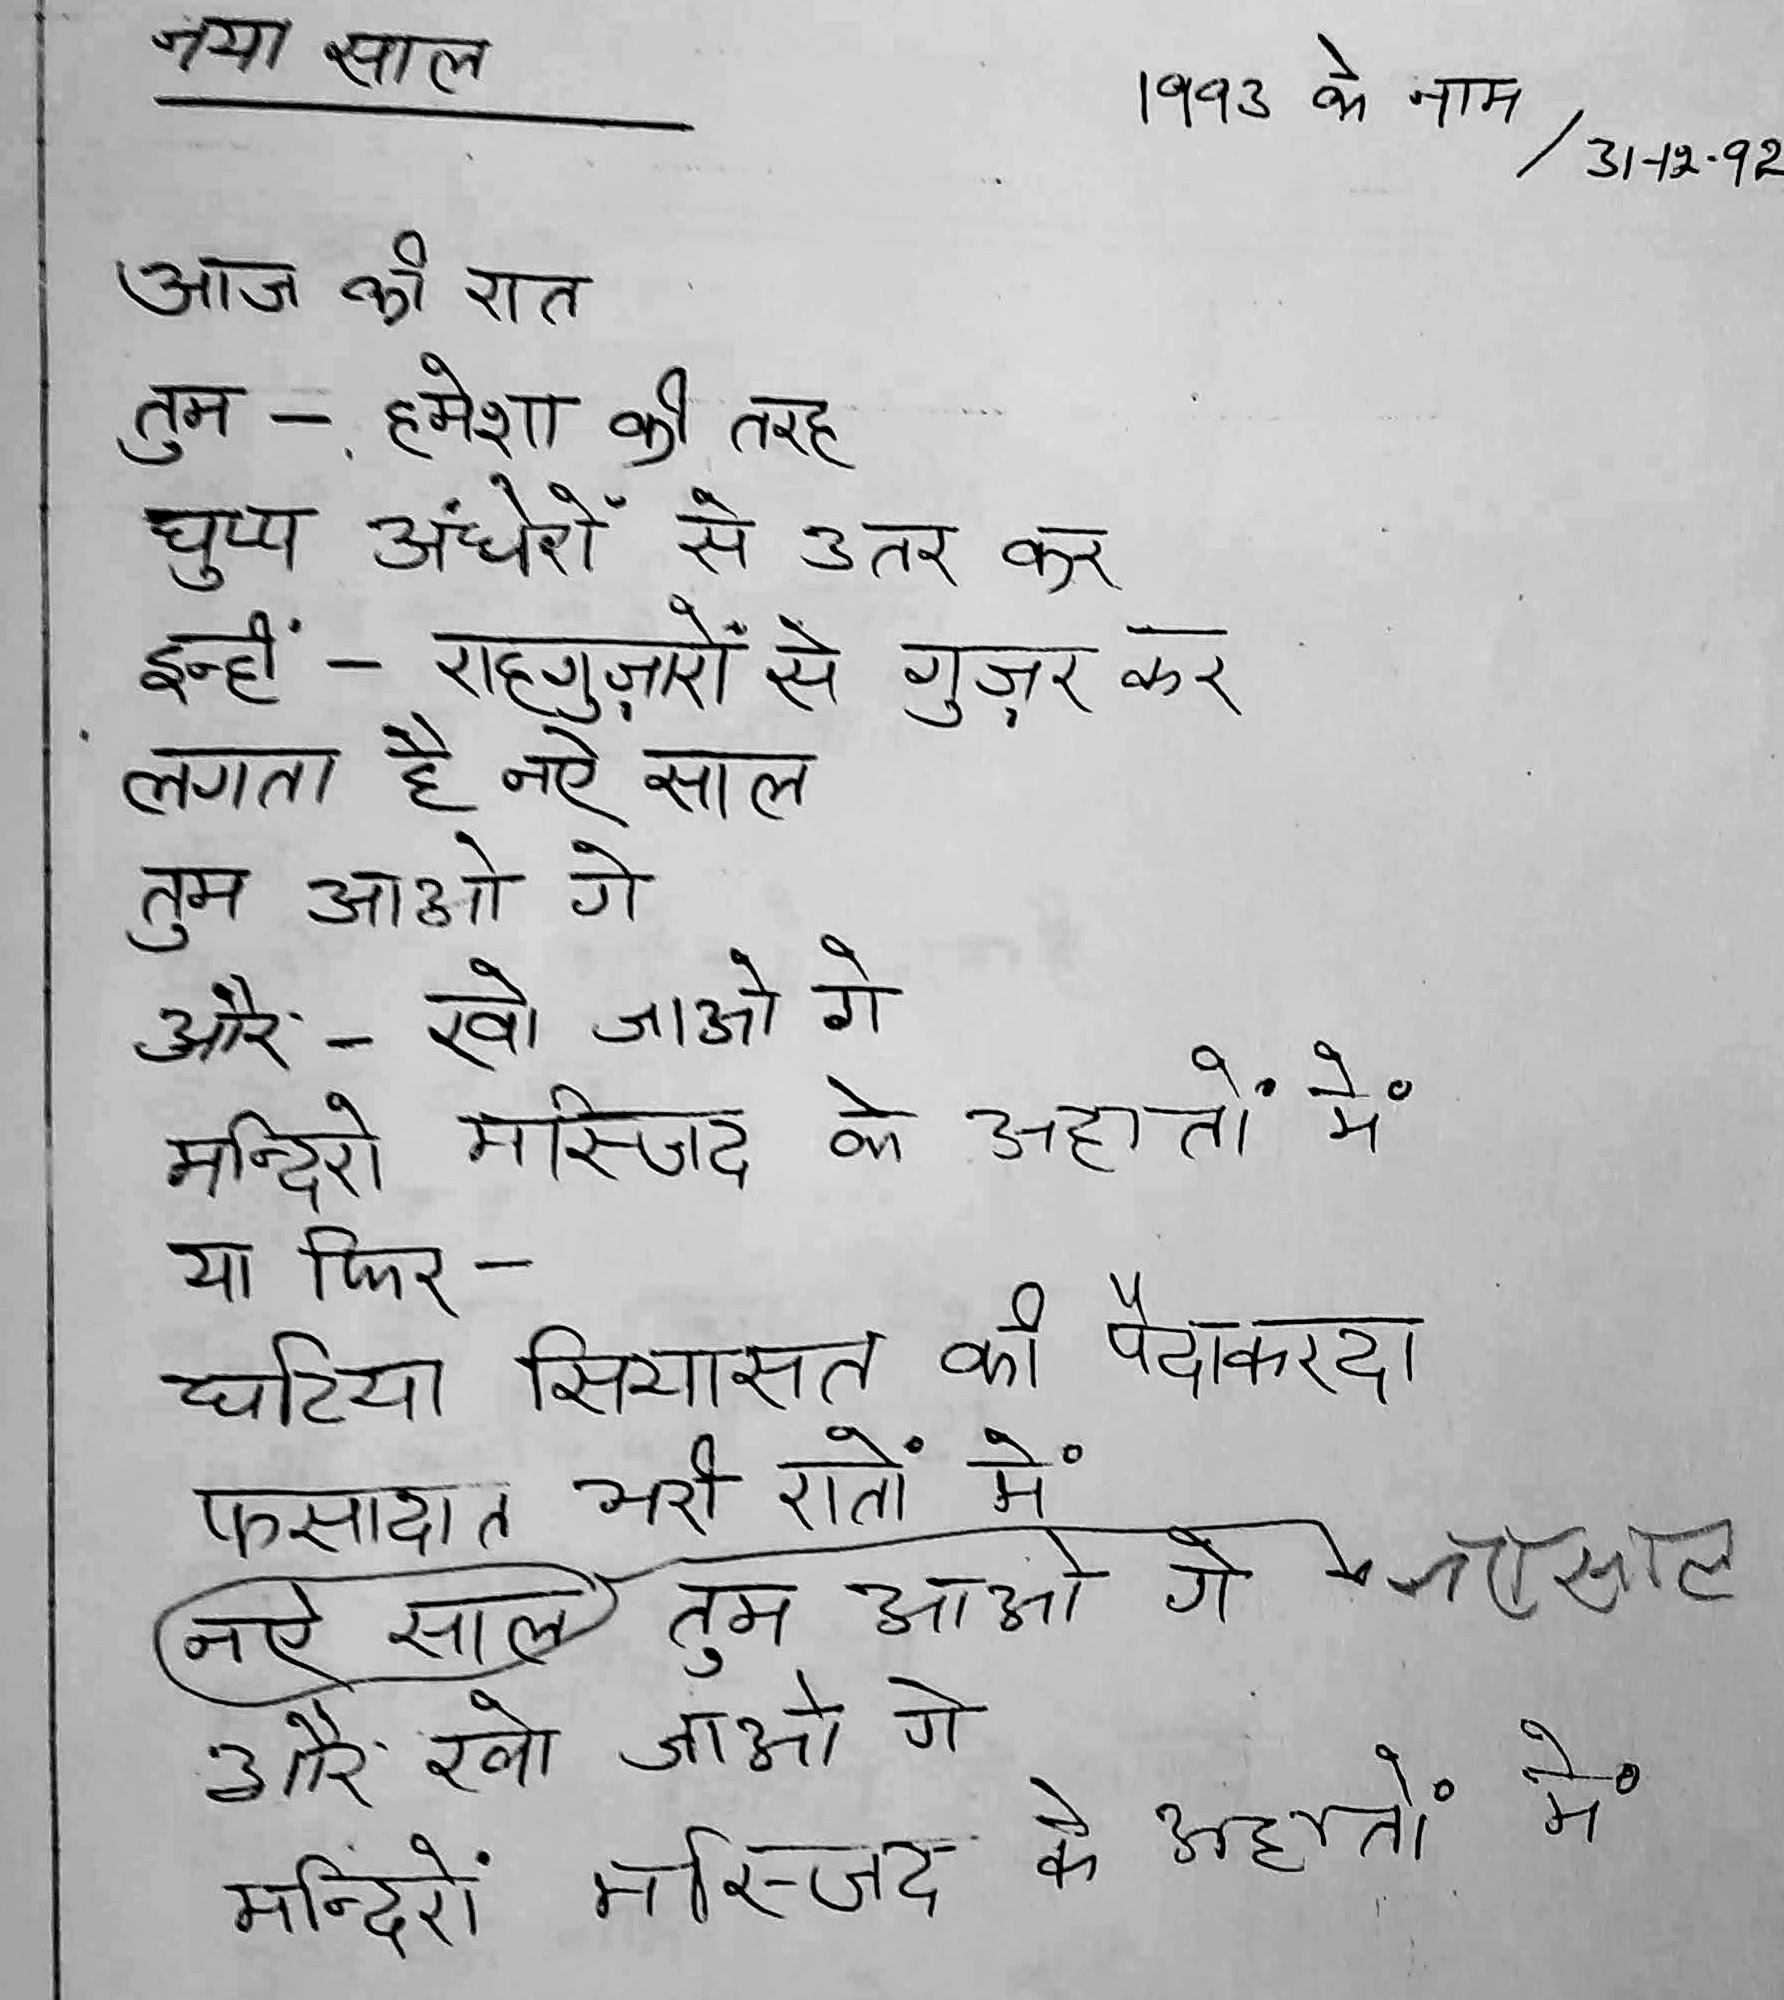 नया साल
1993 के नाम / 31-12-92
आज की रात
तुम - हमेशा की तरह
घुप्प अंधेरों से उतर कर
इन्हीं - राहगुज़ारों से गुज़र कर
लगता है नऐ साल
तुम आओ गे
और - खो जाओ गे
मन्दिरो मस्जिद के अहातों में
या फिर -
घटिया सियासत की पैदाकरदा
फसादात भरी रातों में
नऐ साल तुम आओ गे नऐ साल
और खो जाओ गे
मन्दिरों मस्जिद के अहातों में